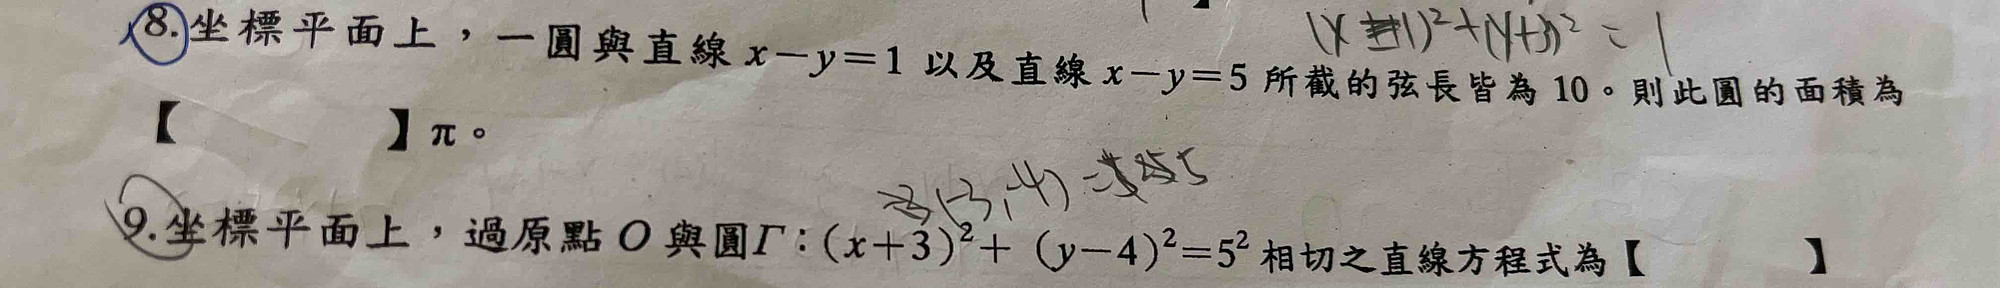 (x+1)²+(y+3)²=1
8.坐標平面上，一圓與直線 x−y=1 以及直線 x−y=5 所截的弦長皆為 10。則此圓的面積為
【　　　】π。
(-3,-4)
9.坐標平面上，過原點 O 與圓Γ：(x+3)²+(y−4)²=5² 相切之直線方程式為【　　　】